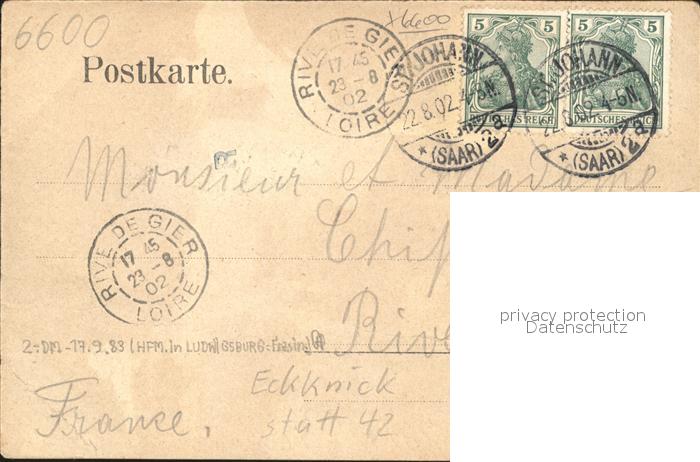 6600
+6600
5 5 5 5
DEUTSCHES REICH
ST. JOHANN
22.8.02. 4-5N.
* (SAAR) 2a
ST. JOHANN
22.8.02. 4-5N.
* (SAAR) 2a
RIVE DE GIER
17 45
23 - 8
02
LOIRE
Postkarte.
Monsieur et Madame
RIVE DE GIER
17 45
23 - 8
02
LOIRE
privacy protection
Datenschutz
2.-DM-17.9.83 (HFM. in LUDWIGSBURG
Rive
Eckknick
France.
statt 42